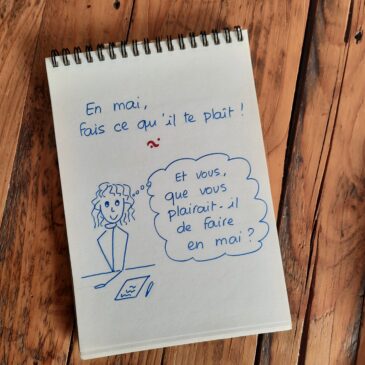 En mai,
fais ce qu'il te plaît !
Et vous,
que vous
plairait-il
de faire
en mai ?